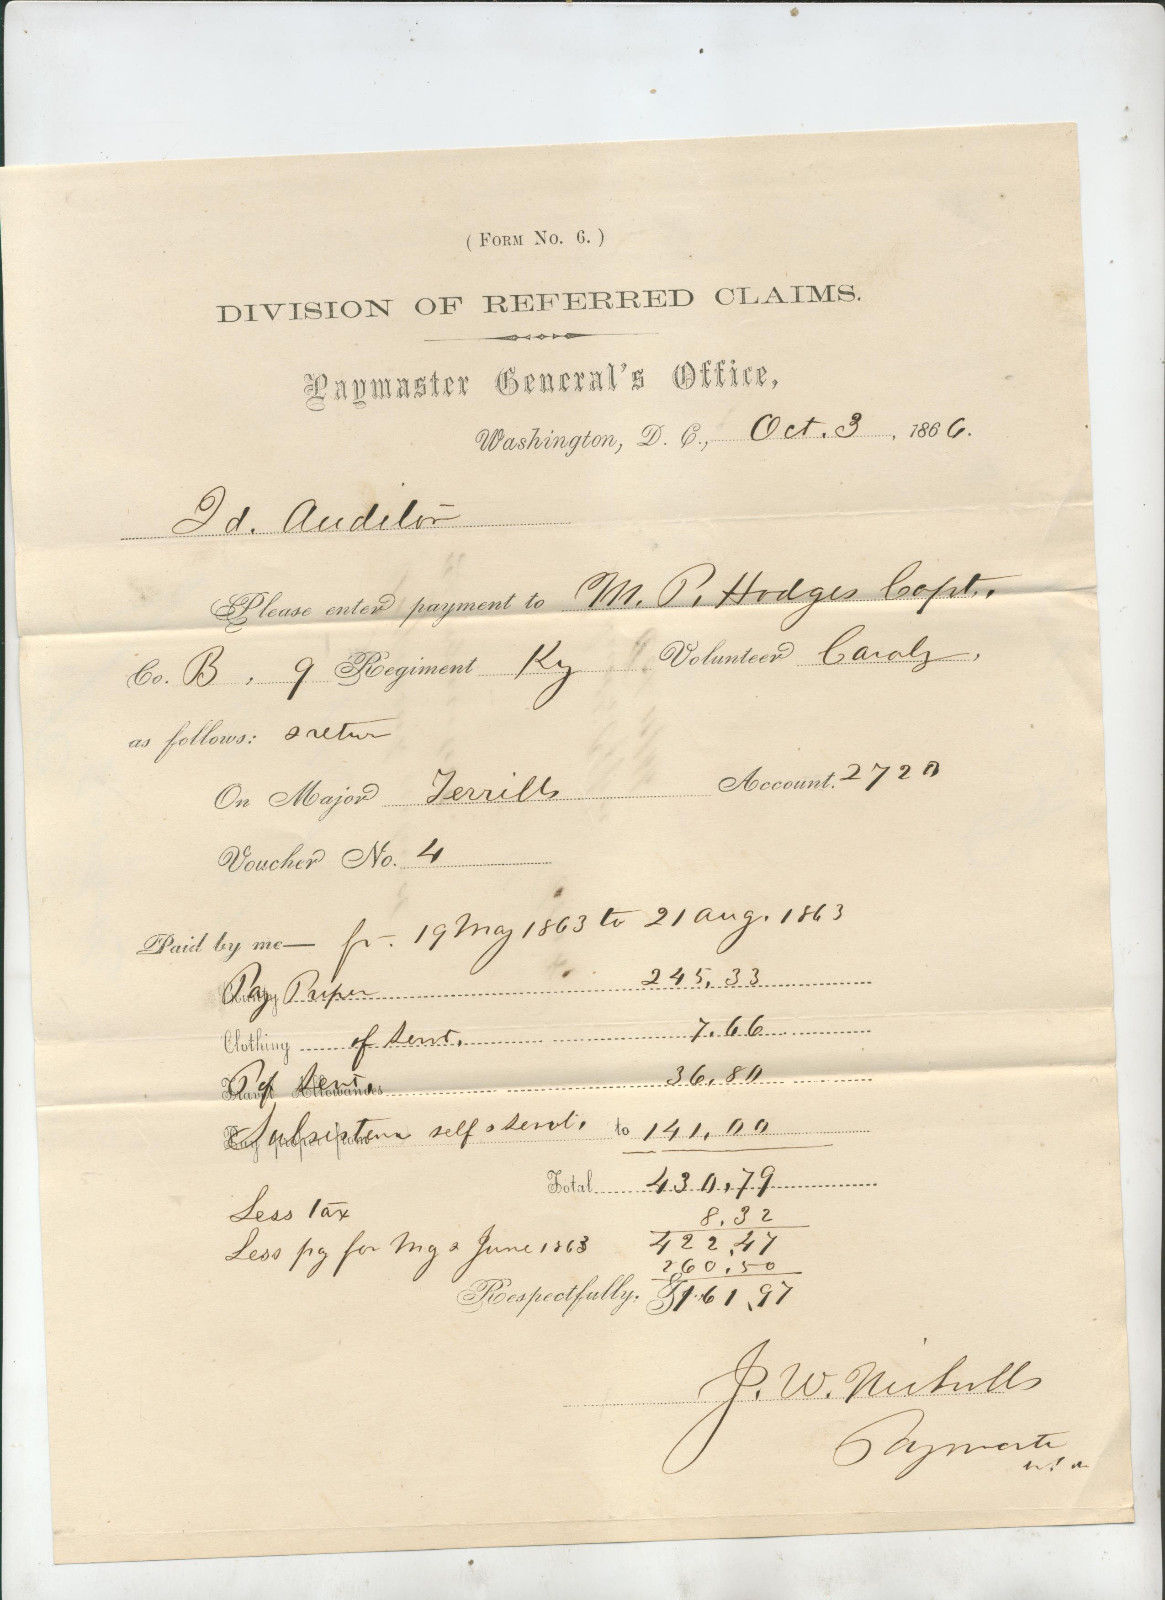 (Form No. 6.)
DIVISION OF REFERRED CLAIMS.
Paymaster General's Office,
Washington, D. C., Oct. 3, 1866.
2d. Auditor
Please enter payment to M. P. Hodges Capt.,
Co. B, 9 Regiment Ky Volunteer Cavaly,
as follows: & return
On Major Terrills Account. 2720
Voucher No. 4
Paid by me— fr. 19 May 1863 to 21 Aug. 1863
Pay Proper 245.33
Clothing of Servt. 7.66
P of Servt. 36.80
Travel Allowances
Subsistence self & Servt. to 141.00
Total 430.79
Less tax 8.32
422.47
Less py for My & June 1863 260.50
Respectfully, $161.97
J. W. Nicholls
Paymaster
U.S.A.